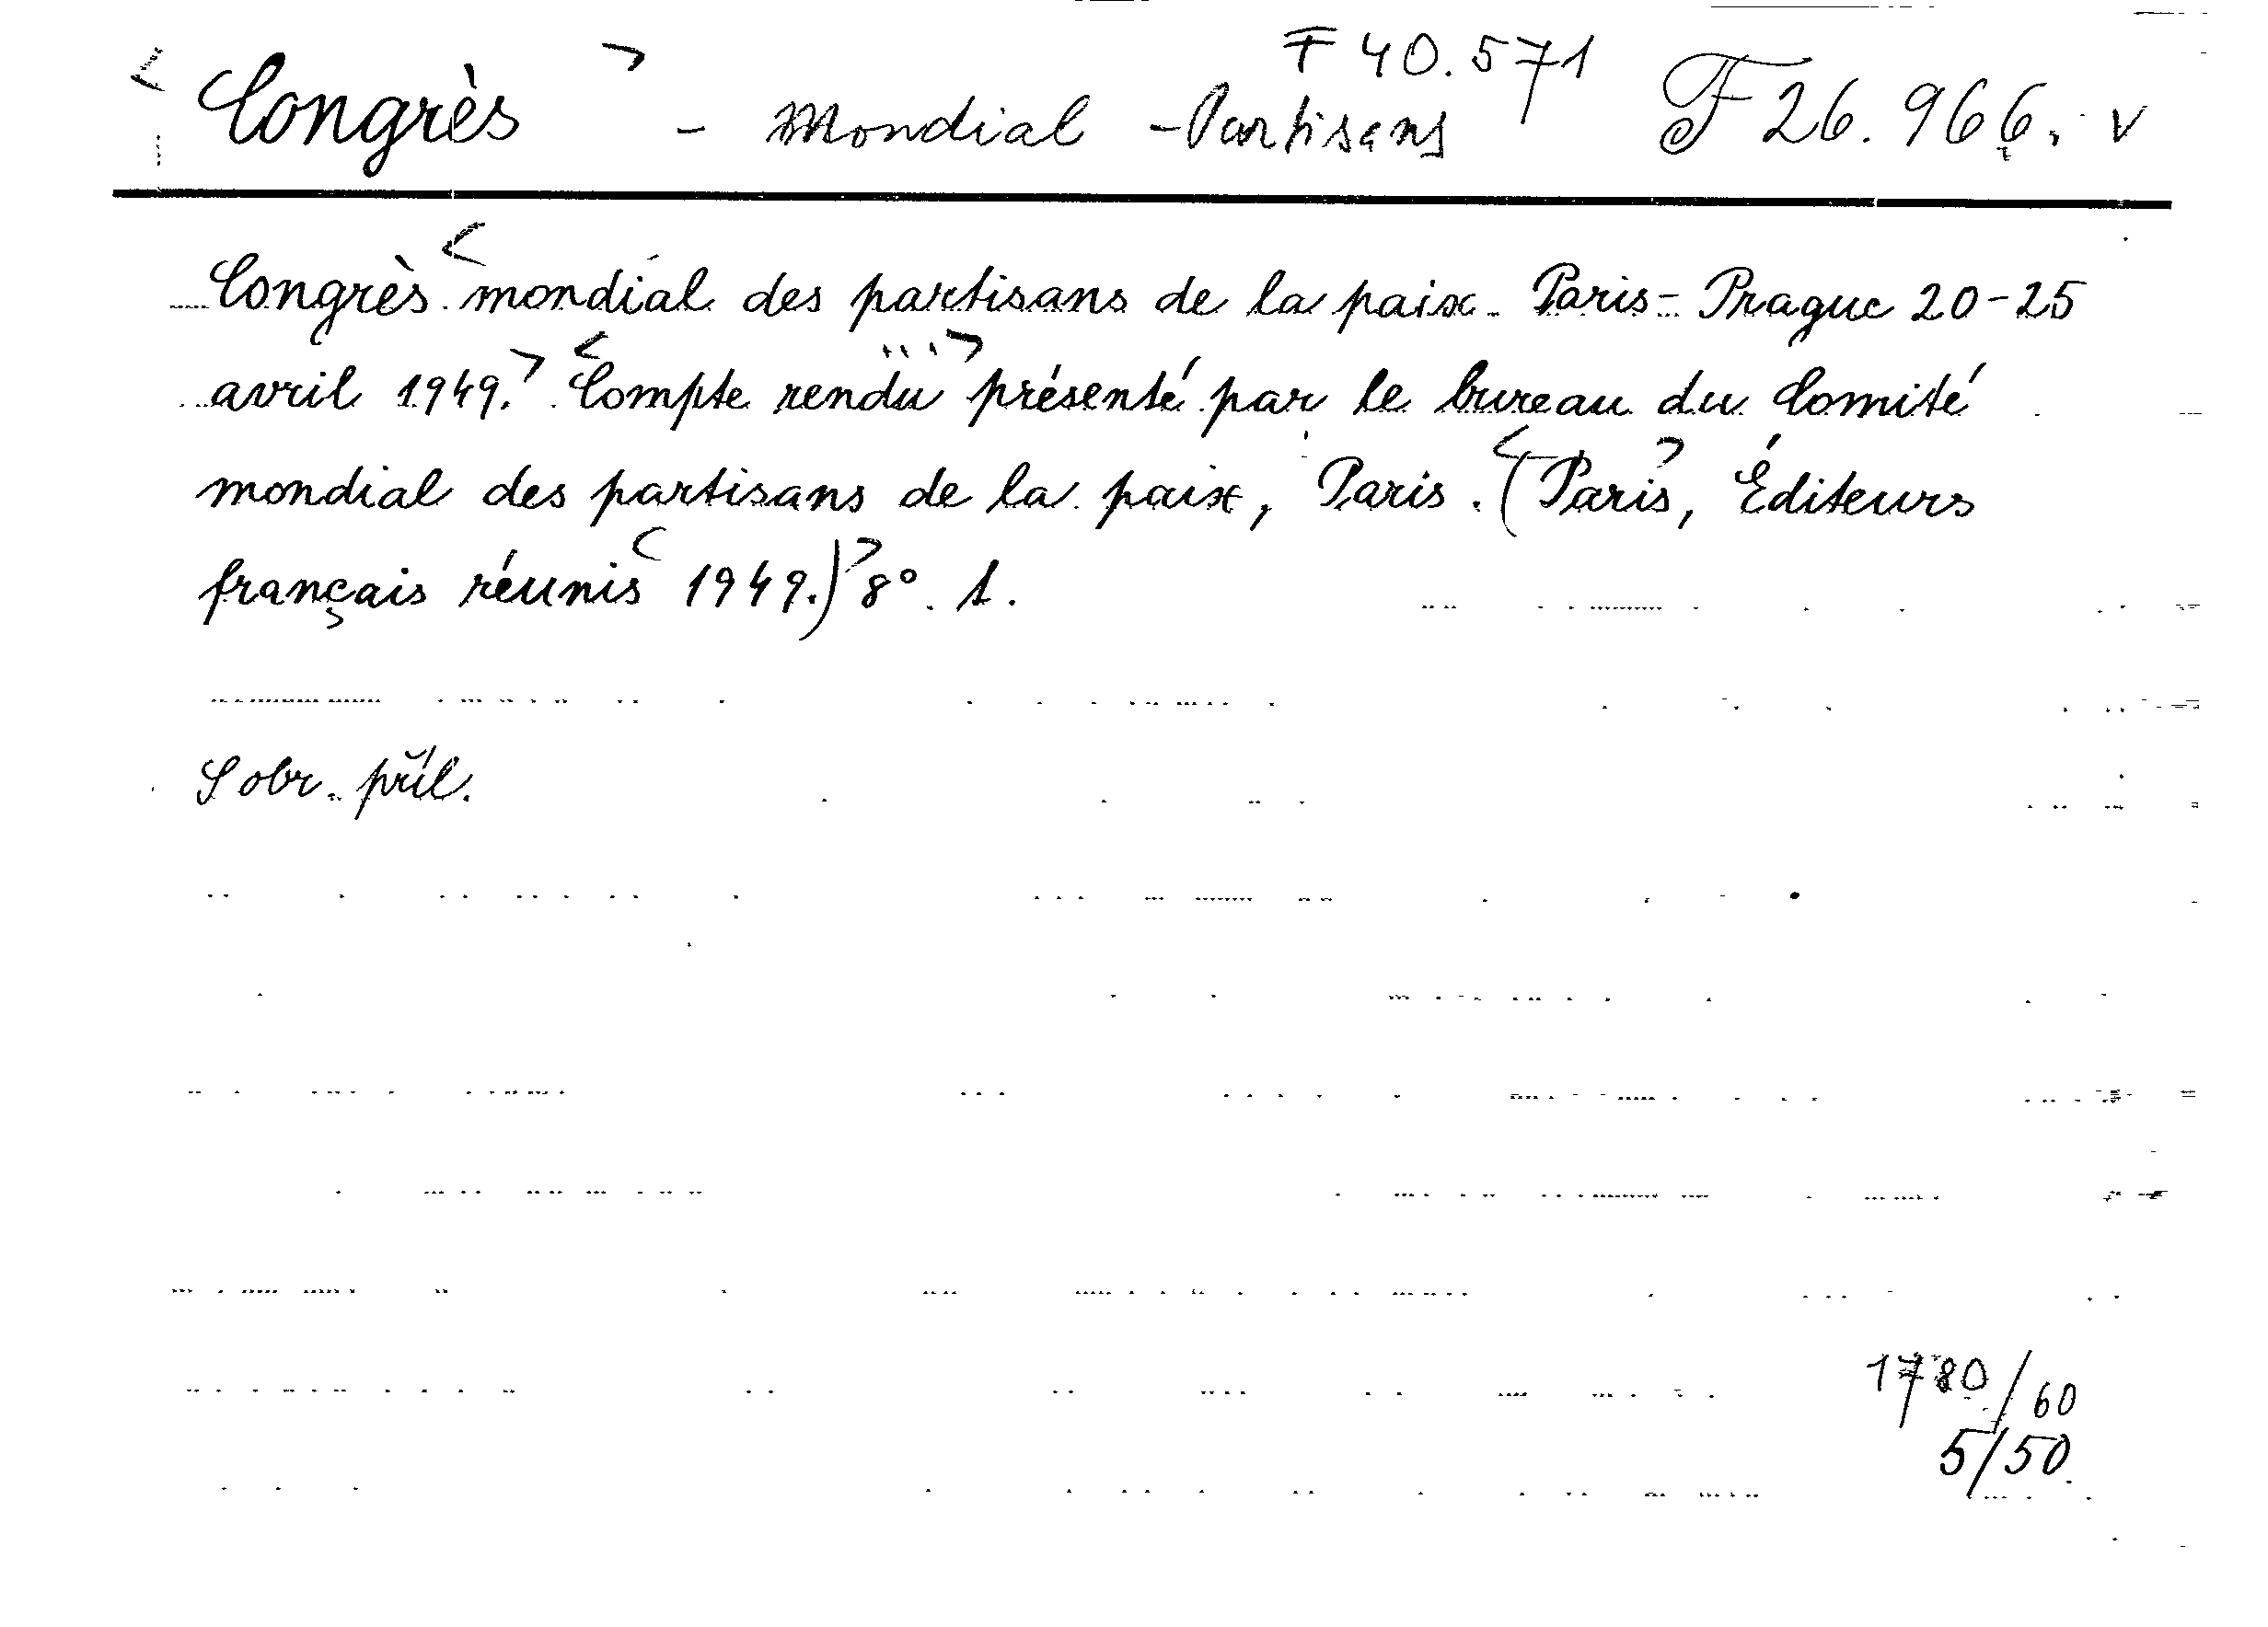 F 40.571
< Congrès > - Mondial - Partisans F 26.966. v
Congrès < mondial des partisans de la paix. Paris - Prague 20-25
avril 1949. > < Compte rendu > présenté par le bureau du Comité
mondial des partisans de la paix, Paris. < (Paris >, Éditeurs
français réunis < 1949.) > 8°. 1.
S obr. příl.
1780/60
5/50